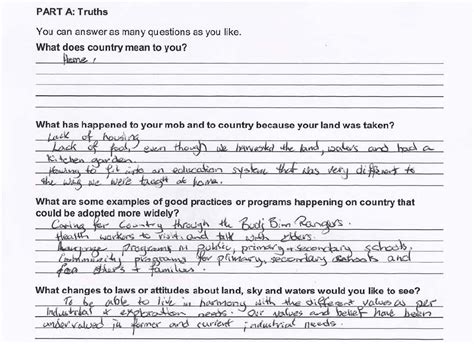 PART A: Truths
You can answer as many questions as you like.
What does country mean to you?
Home,
What has happened to your mob and to country because your land was taken?
Lack of housing
Lack of food, even though we harvested the land, waters and had a
kitchen garden.
Having to fit into an education system that was very different to
the way we were taught at home.
What are some examples of good practices or programs happening on country that
could be adopted more widely?
Caring for Country through the Budj Bim Rangers.
Health workers to visit and talk with elders.
Language programs in public, primary + secondary schools.
Community programs for primary, secondary schools and
for others + families.
What changes to laws or attitudes about land, sky and waters would you like to see?
To be able to live in harmony with the different values as per
Industrial + exploration needs. Our values and belief have been
undervalued in former and current, industrial needs.